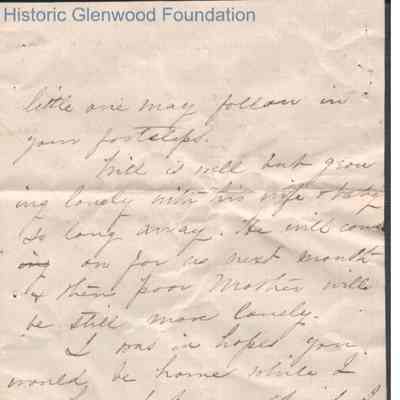 Historic Glenwood Foundation
little one may follow in
your footsteps.
Will is well but grow
ing lonely with his wife & baby
so long away. He will come
on for us next month
& then poor Mother will
be still more lonely.
I was in hopes you
would be home while I